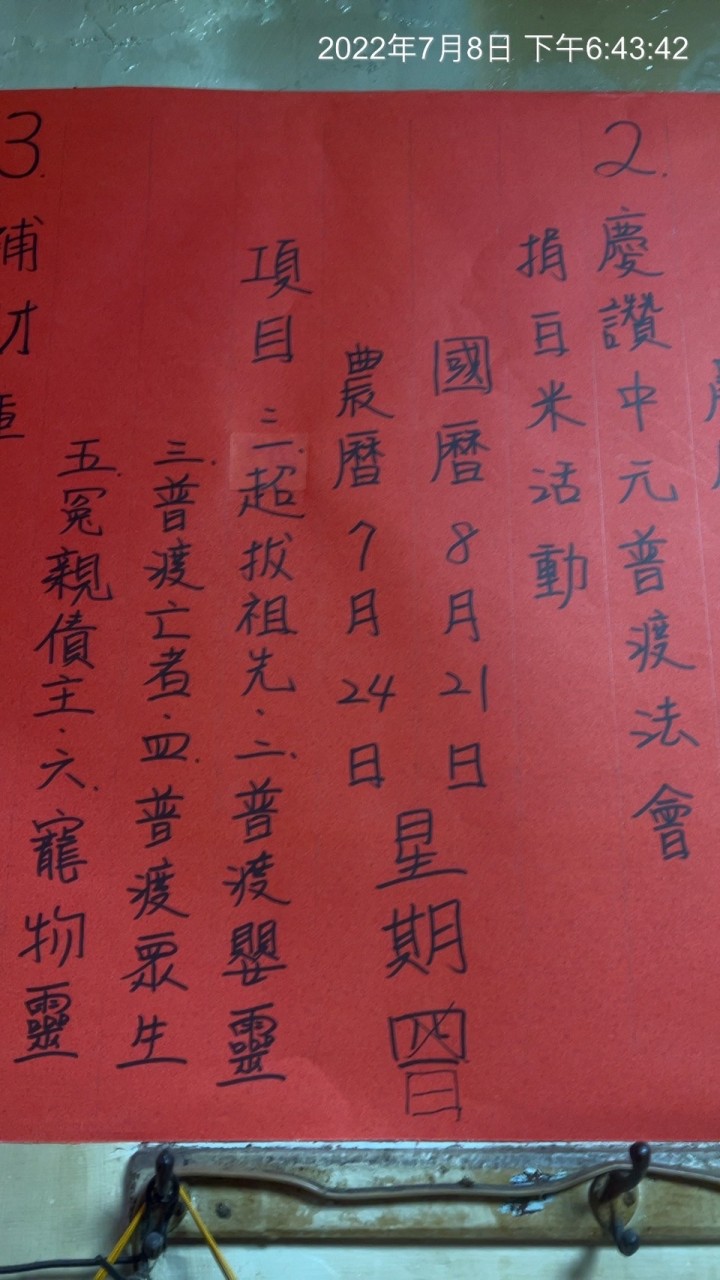 2022年7月8日 下午6:43:42
2.慶讚中元普渡法會
捐白米活動
國曆8月21日
農曆7月24日
星期日
項目 一.超拔祖先.二.普渡嬰靈
三.普渡亡者.四.普渡眾生
五.冤親債主.六.寵物靈
3.補財庫